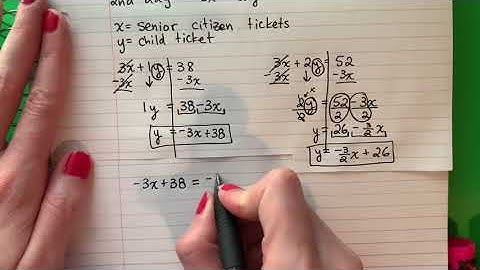 2nd day
x = senior citizen tickets
y = child ticket
3x + 1y = 38
-3x -3x
1y = 38 - 3x
y = -3x + 38
3x + 2y = 52
-3x -3x
2y/2 = 52/2 - 3x/2
y = 26 - 3/2 x
y = -3/2 x + 26
-3x + 38 = -